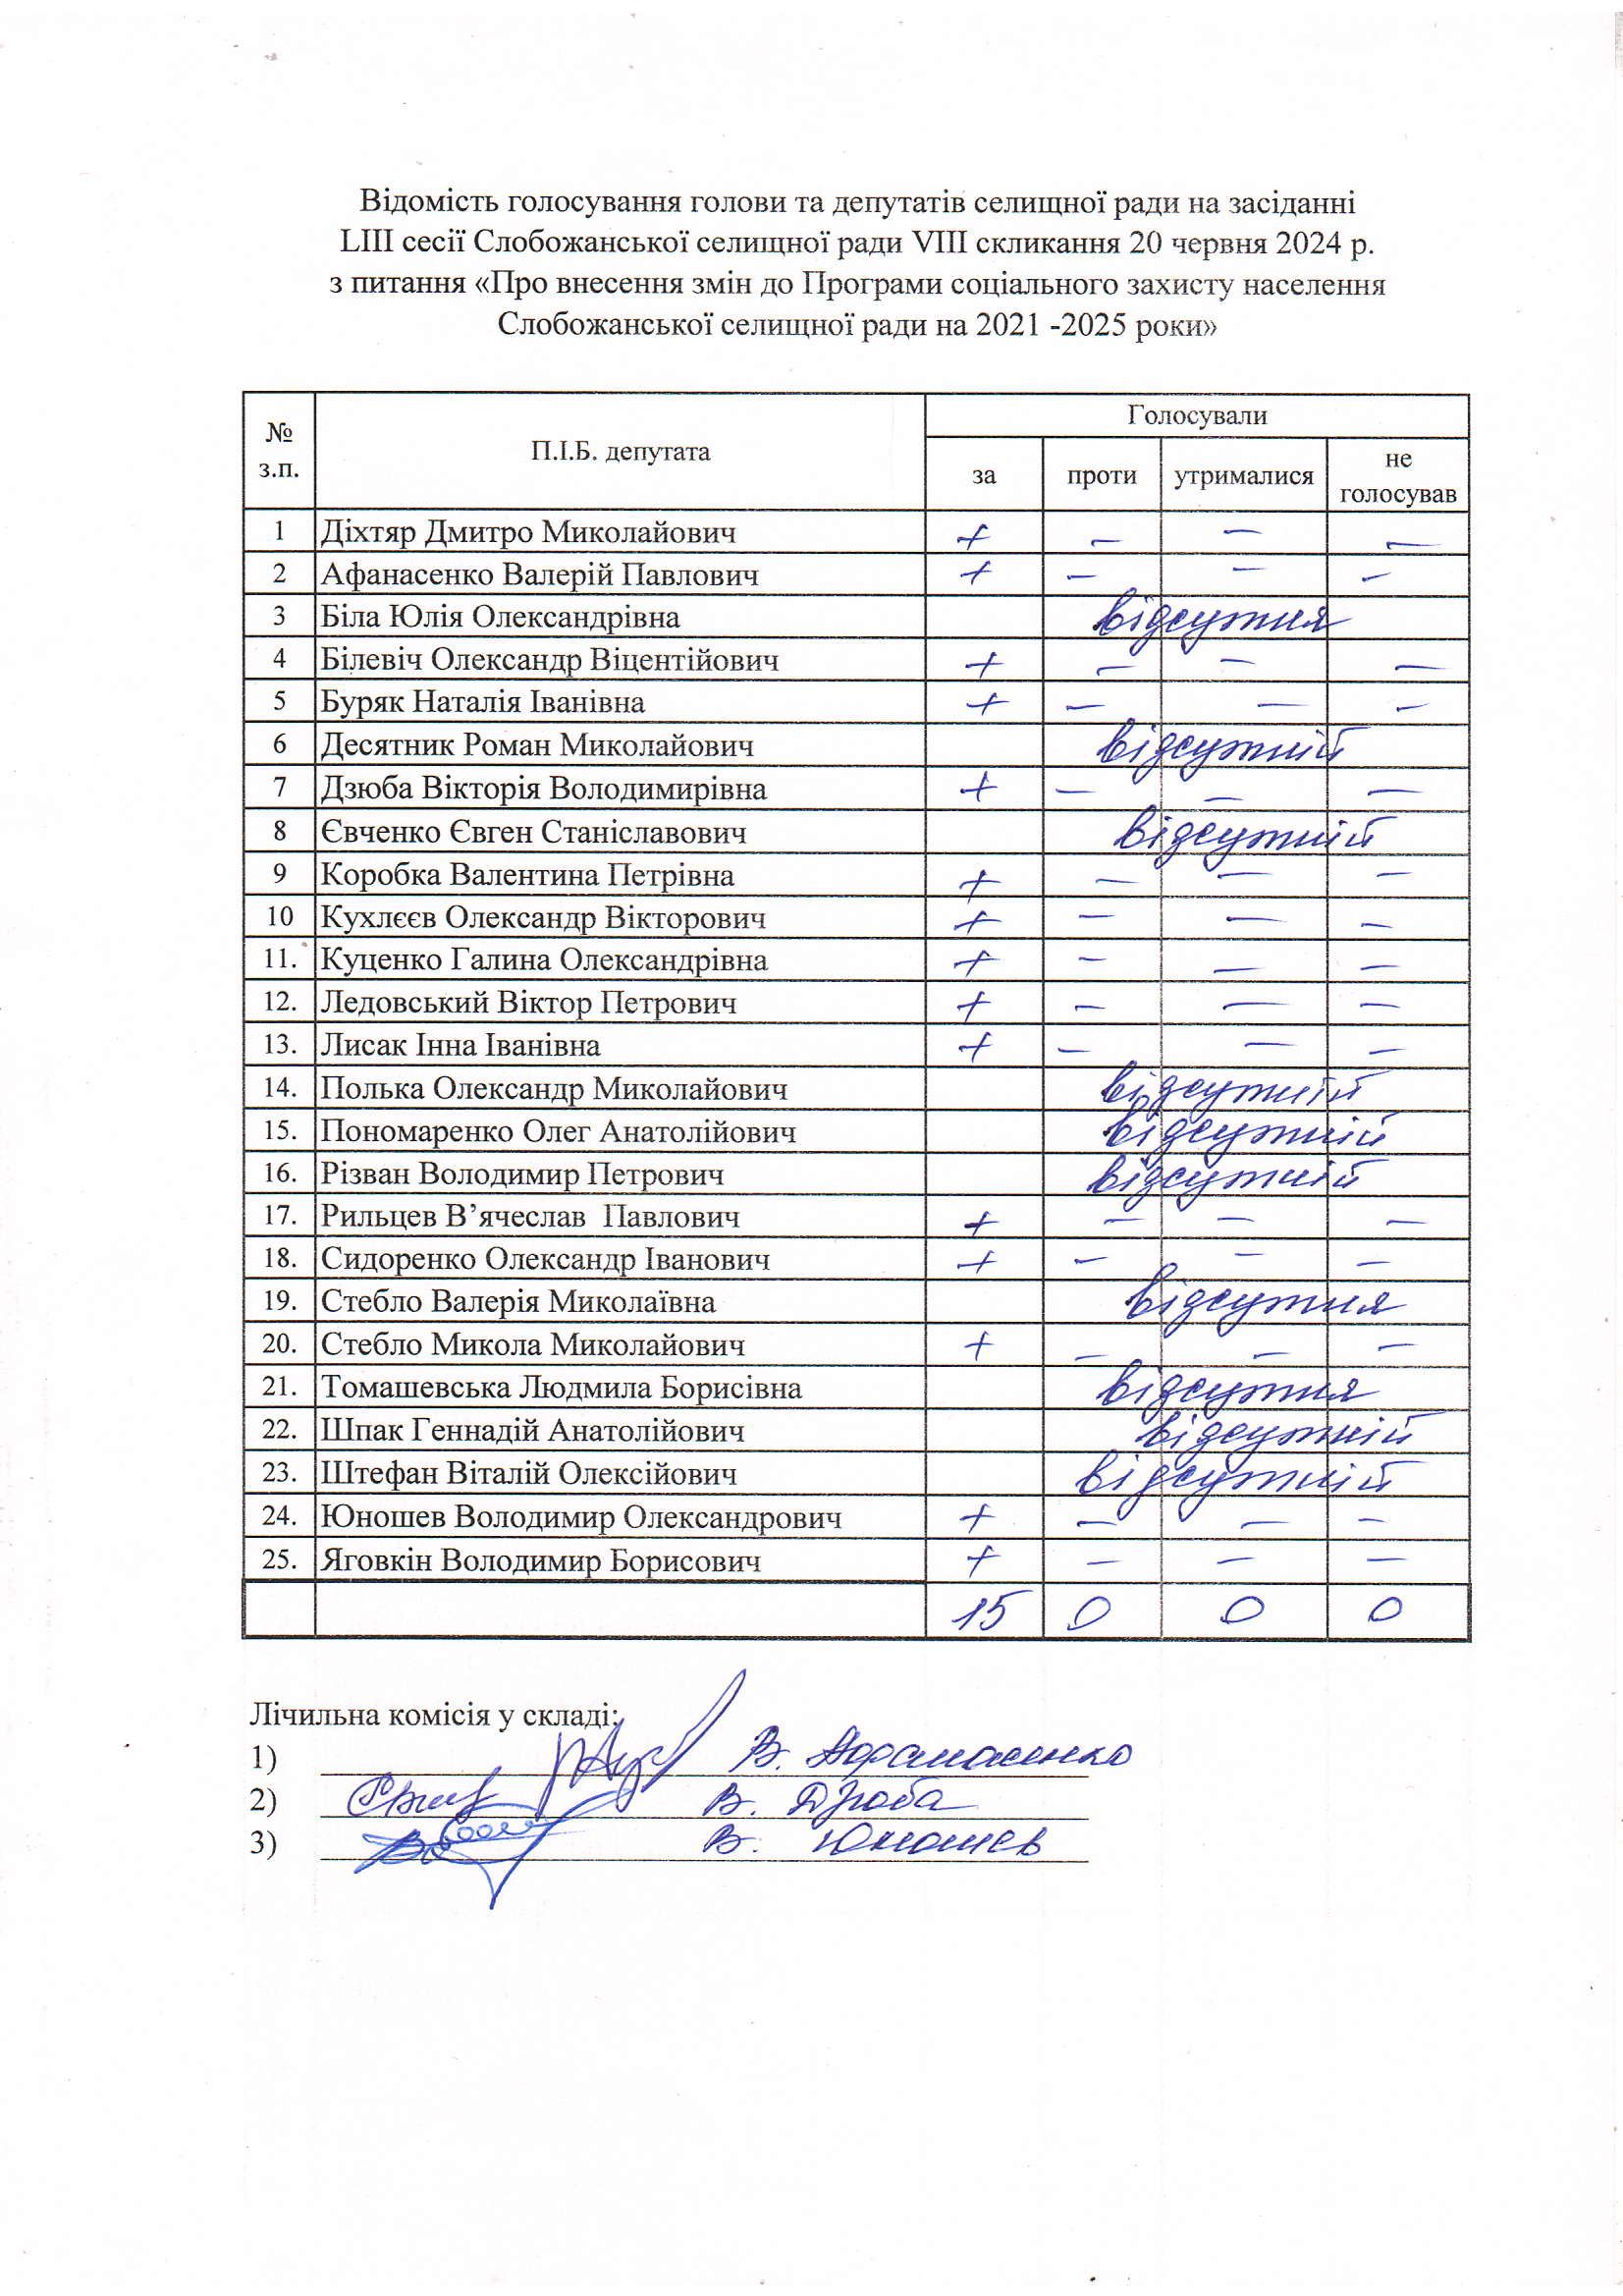 Відомість голосування голови та депутатів селищної ради на засіданні
LIII сесії Слобожанської селищної ради VIII скликання 20 червня 2024 р.
з питання «Про внесення змін до Програми соціального захисту населення
Слобожанської селищної ради на 2021 -2025 роки»
№ з.п. П.І.Б. депутата Голосували
за проти утрималися не голосував
1 Діхтяр Дмитро Миколайович + – – –
2 Афанасенко Валерій Павлович + – – –
3 Біла Юлія Олександрівна відсутня
4 Білевіч Олександр Віцентійович + – – –
5 Буряк Наталія Іванівна + – – –
6 Десятник Роман Миколайович відсутній
7 Дзюба Вікторія Володимирівна + – – –
8 Євченко Євген Станіславович відсутній
9 Коробка Валентина Петрівна + – – –
10 Кухлєєв Олександр Вікторович + – – –
11. Куценко Галина Олександрівна + – – –
12. Ледовський Віктор Петрович + – – –
13. Лисак Інна Іванівна + – – –
14. Полька Олександр Миколайович відсутній
15. Пономаренко Олег Анатолійович відсутній
16. Різван Володимир Петрович відсутній
17. Рильцев В’ячеслав Павлович + – – –
18. Сидоренко Олександр Іванович + – – –
19. Стебло Валерія Миколаївна відсутня
20. Стебло Микола Миколайович + – – –
21. Томашевська Людмила Борисівна відсутня
22. Шпак Геннадій Анатолійович відсутній
23. Штефан Віталій Олексійович відсутній
24. Юношев Володимир Олександрович + – – –
25. Яговкін Володимир Борисович + – – –
15 0 0 0
Лічильна комісія у складі:
1) В. Афанасенко
2) В. Дзюба
3) В. Юношев